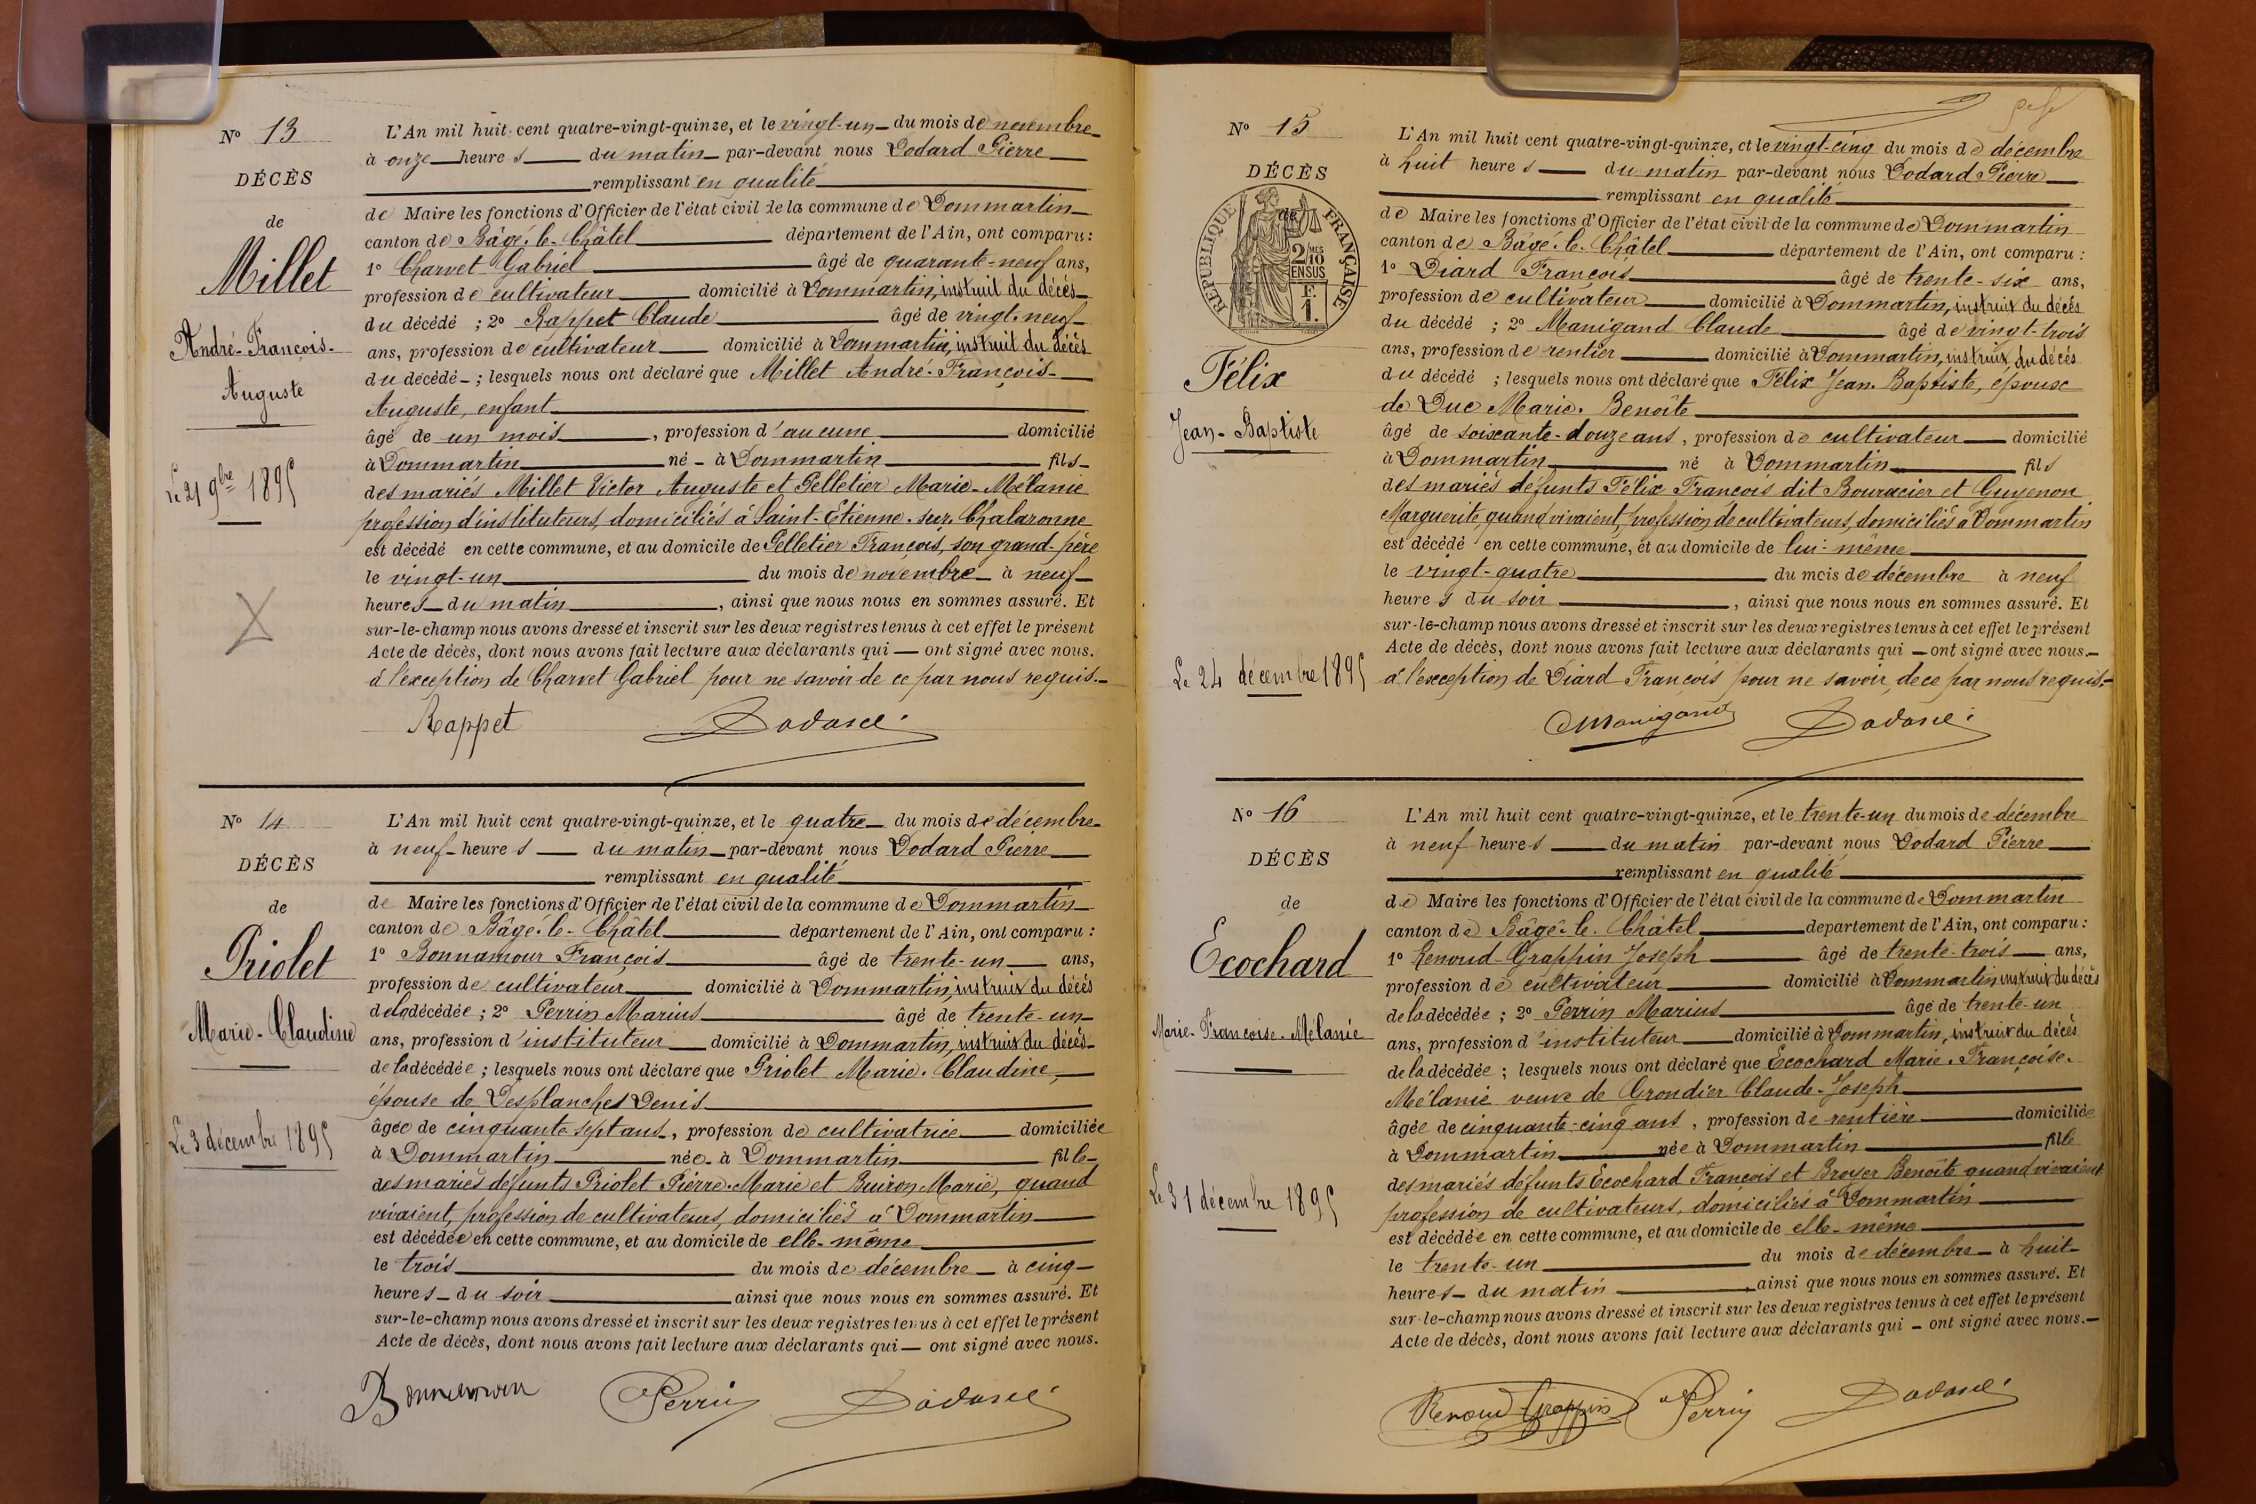 Nº 13
DÉCÈS
de
Millet
André-François-
Auguste
Le 21 9bre 1895
L'An mil huit cent quatre-vingt-quinze, et le vingt-un du mois de novembre
à onze heures du matin par-devant nous Dodard Pierre
remplissant en qualité
de Maire les fonctions d'Officier de l'état civil de la commune de Dommartin
canton de Bâgé-le-Châtel département de l'Ain, ont comparu :
1º Charvet Gabriel âgé de quarante-neuf ans,
profession de cultivateur domicilié à Dommartin, instruit du décès
du décédé ; 2º Rappet Claude âgé de vingt-neuf
ans, profession de cultivateur domicilié à Dommartin, instruit du décès
du décédé ; lesquels nous ont déclaré que Millet André-François-
Auguste, enfant
âgé de un mois, profession d'aucune domicilié
à Dommartin né à Dommartin fils
des mariés Millet Victor Auguste et Pelletier Marie-Mélanie
profession d'instituteurs, domiciliés à Saint-Etienne-sur-Chalaronne
est décédé en cette commune, et au domicile de Pelletier François, son grand-père
le vingt-un du mois de novembre à neuf
heures du matin, ainsi que nous nous en sommes assuré. Et
sur-le-champ nous avons dressé et inscrit sur les deux registres tenus à cet effet le présent
Acte de décès, dont nous avons fait lecture aux déclarants qui — ont signé avec nous.
à l'exception de Charvet Gabriel pour ne savoir de ce par nous requis.
Rappet Dodard
Nº 14
DÉCÈS
de
Priolet
Marie-Claudine
Le 3 décembre 1895
L'An mil huit cent quatre-vingt-quinze, et le quatre du mois de décembre
à neuf heures du matin par-devant nous Dodard Pierre
remplissant en qualité
de Maire les fonctions d'Officier de l'état civil de la commune de Dommartin
canton de Bâgé-le-Châtel département de l'Ain, ont comparu :
1º Bonnamour François âgé de trente-un ans,
profession de cultivateur domicilié à Dommartin, instruit du décès
de la décédée ; 2º Perrin Marius âgé de trente-un
ans, profession d'instituteur domicilié à Dommartin, instruit du décès
de la décédée ; lesquels nous ont déclaré que Priolet Marie-Claudine,
épouse de Desplanches Denis
âgée de cinquante sept ans, profession de cultivatrice domiciliée
à Dommartin née à Dommartin fille
des mariés défunts Priolet Pierre-Marie et Buiron Marie, quand
vivaient, profession de cultivateurs, domiciliés à Dommartin
est décédée en cette commune, et au domicile de elle-même
le trois du mois de décembre à cinq
heures du soir ainsi que nous nous en sommes assuré. Et
sur-le-champ nous avons dressé et inscrit sur les deux registres tenus à cet effet le présent
Acte de décès, dont nous avons fait lecture aux déclarants qui — ont signé avec nous.
Bonnamour Perrin Dodard
Nº 15
DÉCÈS
de
RÉPUBLIQUE FRANÇAISE
2/10
EN SUS
F.
1.
Félix
Jean-Baptiste
Le 24 décembre 1895
L'An mil huit cent quatre-vingt-quinze, et le vingt-cinq du mois de décembre
à huit heures du matin par-devant nous Dodard Pierre
remplissant en qualité
de Maire les fonctions d'Officier de l'état civil de la commune de Dommartin
canton de Bâgé-le-Châtel département de l'Ain, ont comparu :
1º Diard François âgé de trente-six ans,
profession de cultivateur domicilié à Dommartin, instruit du décès
du décédé ; 2º Manigand Claude âgé de vingt-trois
ans, profession de rentier domicilié à Dommartin, instruit du décès
du décédé ; lesquels nous ont déclaré que Félix Jean-Baptiste, epoux
de Duc Marie-Benoîte
âgé de soixante-douze ans, profession de cultivateur domicilié
à Dommartin né à Dommartin fils
des mariés défunts Félix François dit Bouracier et Guyenon
Marguerite, quand vivaient, profession de cultivateurs, domiciliés à Dommartin
est décédé en cette commune, et au domicile de lui-même
le vingt-quatre du mois de décembre à neuf
heures du soir, ainsi que nous nous en sommes assuré. Et
sur-le-champ nous avons dressé et inscrit sur les deux registres tenus à cet effet le présent
Acte de décès, dont nous avons fait lecture aux déclarants qui — ont signé avec nous.
à l'exception de Diard François pour ne savoir, de ce par nous requis.
Manigand Dodard
Nº 16
DÉCÈS
de
Ecochard
Marie-Françoise-Mélanie
Le 31 décembre 1895
L'An mil huit cent quatre-vingt-quinze, et le trente-un du mois de décembre
à neuf heures du matin par-devant nous Dodard Pierre
remplissant en qualité
de Maire les fonctions d'Officier de l'état civil de la commune de Dommartin
canton de Bâgé-le-Châtel département de l'Ain, ont comparu :
1º Renoud-Grappin Joseph âgé de trente-trois ans,
profession de cultivateur domicilié à Dommartin instruit du décès
de la décédée ; 2º Perrin Marius âgé de trente-un
ans, profession d'instituteur domicilié à Dommartin, instruit du décès
de la décédée ; lesquels nous ont déclaré que Ecochard Marie-Françoise-
Mélanie veuve de Grondier Claude-Joseph
âgée de cinquante-cinq ans, profession de rentière domiciliée
à Dommartin née à Dommartin fille
des mariés défunts Ecochard François et Broyer Benoîte quand vivaient
profession de cultivateurs, domiciliés à Dommartin
est décédée en cette commune, et au domicile de elle-même
le trente-un du mois de décembre à huit
heures du matin, ainsi que nous nous en sommes assuré. Et
sur-le-champ nous avons dressé et inscrit sur les deux registres tenus à cet effet le présent
Acte de décès, dont nous avons fait lecture aux déclarants qui — ont signé avec nous.
Renoud Grappin Perrin Dodard